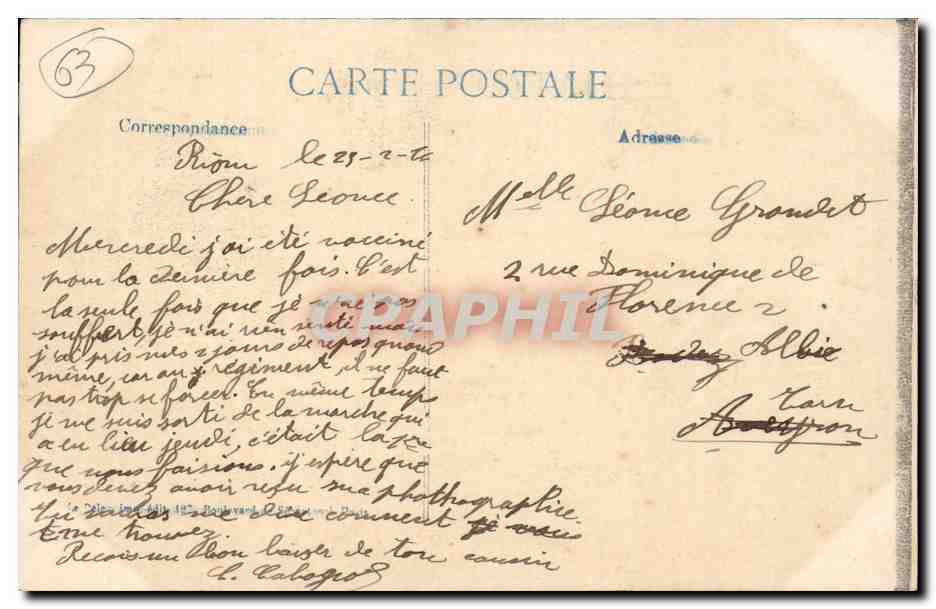 63
CARTE POSTALE
Correspondance
Riom le 23-2-12
Chère Léonce
Mercredi j'ai été vacciné
pour la dernière fois. C'est
la seule fois que je n'ai pas
souffert, je n'ai rien senti mais
j'ai pris mes 2 jours de repos quand
même, car au régiment, il ne faut
pas trop se forcer. En même temps
je me suis sorti de la marche qui
a eu lieu jeudi, c'était la 1ère
que nous faisions. j'espère que
vous devez avoir reçu ma photographie.
tu me diras comment je vous
me trouvez.
Recois un bon baiser de ton cousin
Adresse
Melle Léonce Grandet
2 rue Dominique de
Florence 2
Rodez Albie
Tarn
Aveyron
CPAPHIL